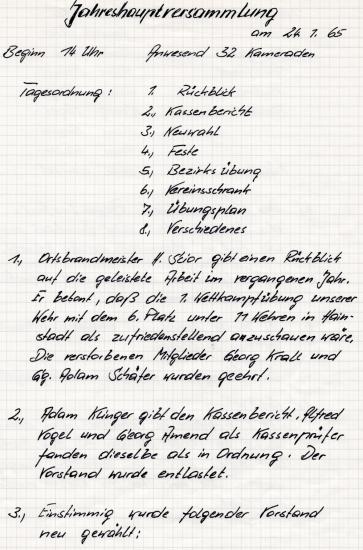 Jahreshauptversammlung
am 24.1.65
Beginn 14 Uhr Anwesend 32 Kameraden
Tagesordnung: 1. Rückblick
2., Kassenbericht
3., Neuwahl
4., Feste
5., Bezirksübung
6., Vereinsschrank
7., Übungsplan
8., Verschiedenes
1., Ortsbrandmeister H. Skior gibt einen Rückblick
auf die geleistete Arbeit im vergangenen Jahr.
Er betont, daß die 1. Wettkampfübung unserer
Wehr mit dem 6. Platz unter 11 Wehren in Hain-
stadt als zufriedenstellend anzuschauen wäre.
Die verstorbenen Mitglieder Georg Krall und
Gg. Adam Schäfer wurden geehrt.
2., Adam Künger gibt den Kassenbericht. Alfred
Vogel und Georg Amend als Kassenprüfer
fanden dieselbe als in Ordnung. Der
Vorstand wurde entlastet.
3., Einstimmig wurde folgender Vorstand
neu gewählt: